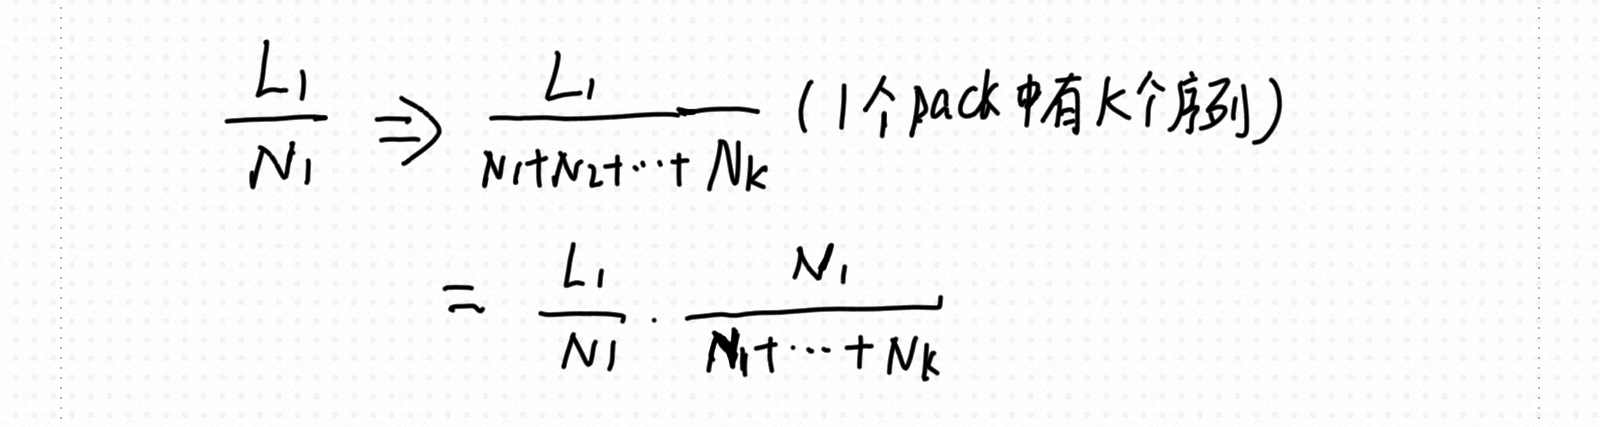 L₁/N₁ ⇒ L₁/(N₁+N₂+⋯+N_k) (1个pack中有K个序列)
= L₁/N₁ · N₁/(N₁+⋯+N_k)